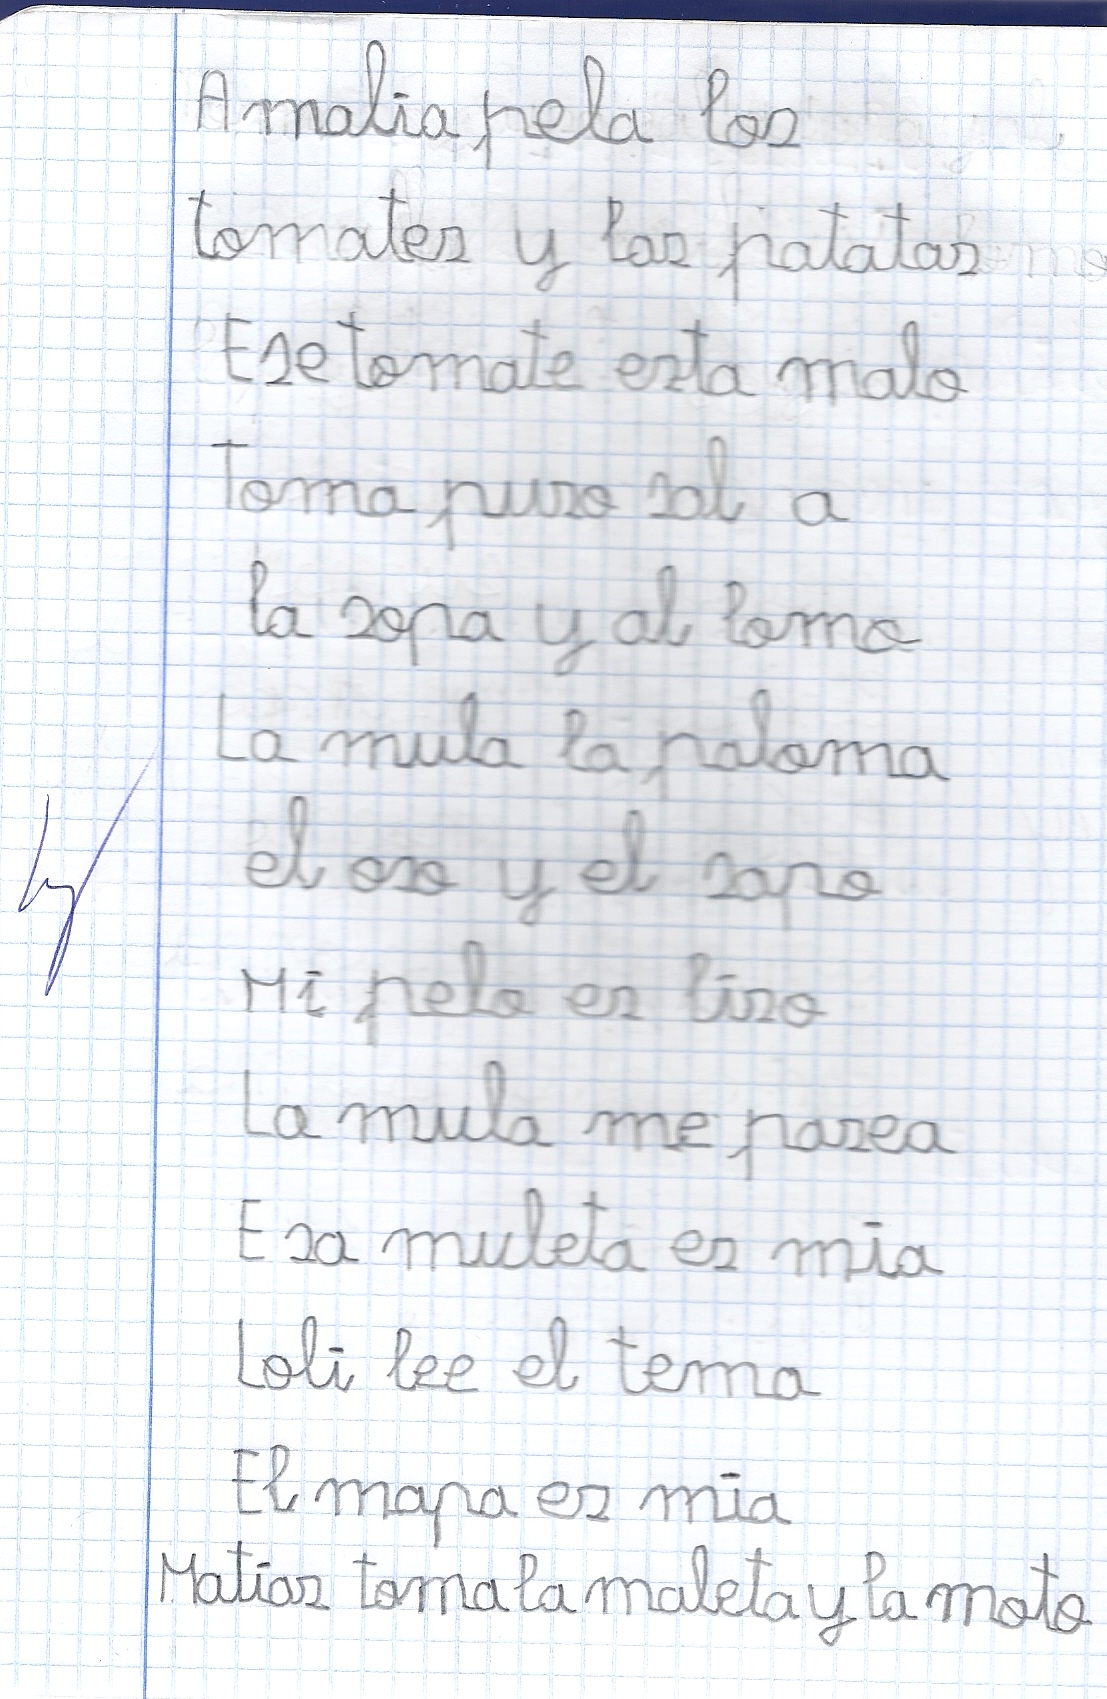 Amalia pela los
tomates y las patatas
Ese tomate esta malo
Toma puso sal a
la sopa y al lomo
La mula la paloma
el oso y el sapo
Mi pelo es liso
La mula me pasea
Esa muleta es mia
Loli lee el tema
El mapa es mia
Matias toma la maleta y la moto